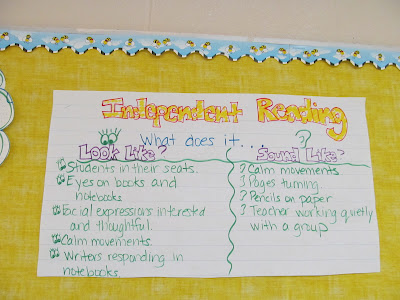 Independent Reading
What does it...?
Look Like?
Students in their seats.
Eyes on books and
notebooks
Facial expressions interested
and thoughtful.
Calm movements.
Writers responding in
notebooks.
Sound Like?
Calm movements
Pages turning
Pencils on paper
Teacher working quietly
with a group